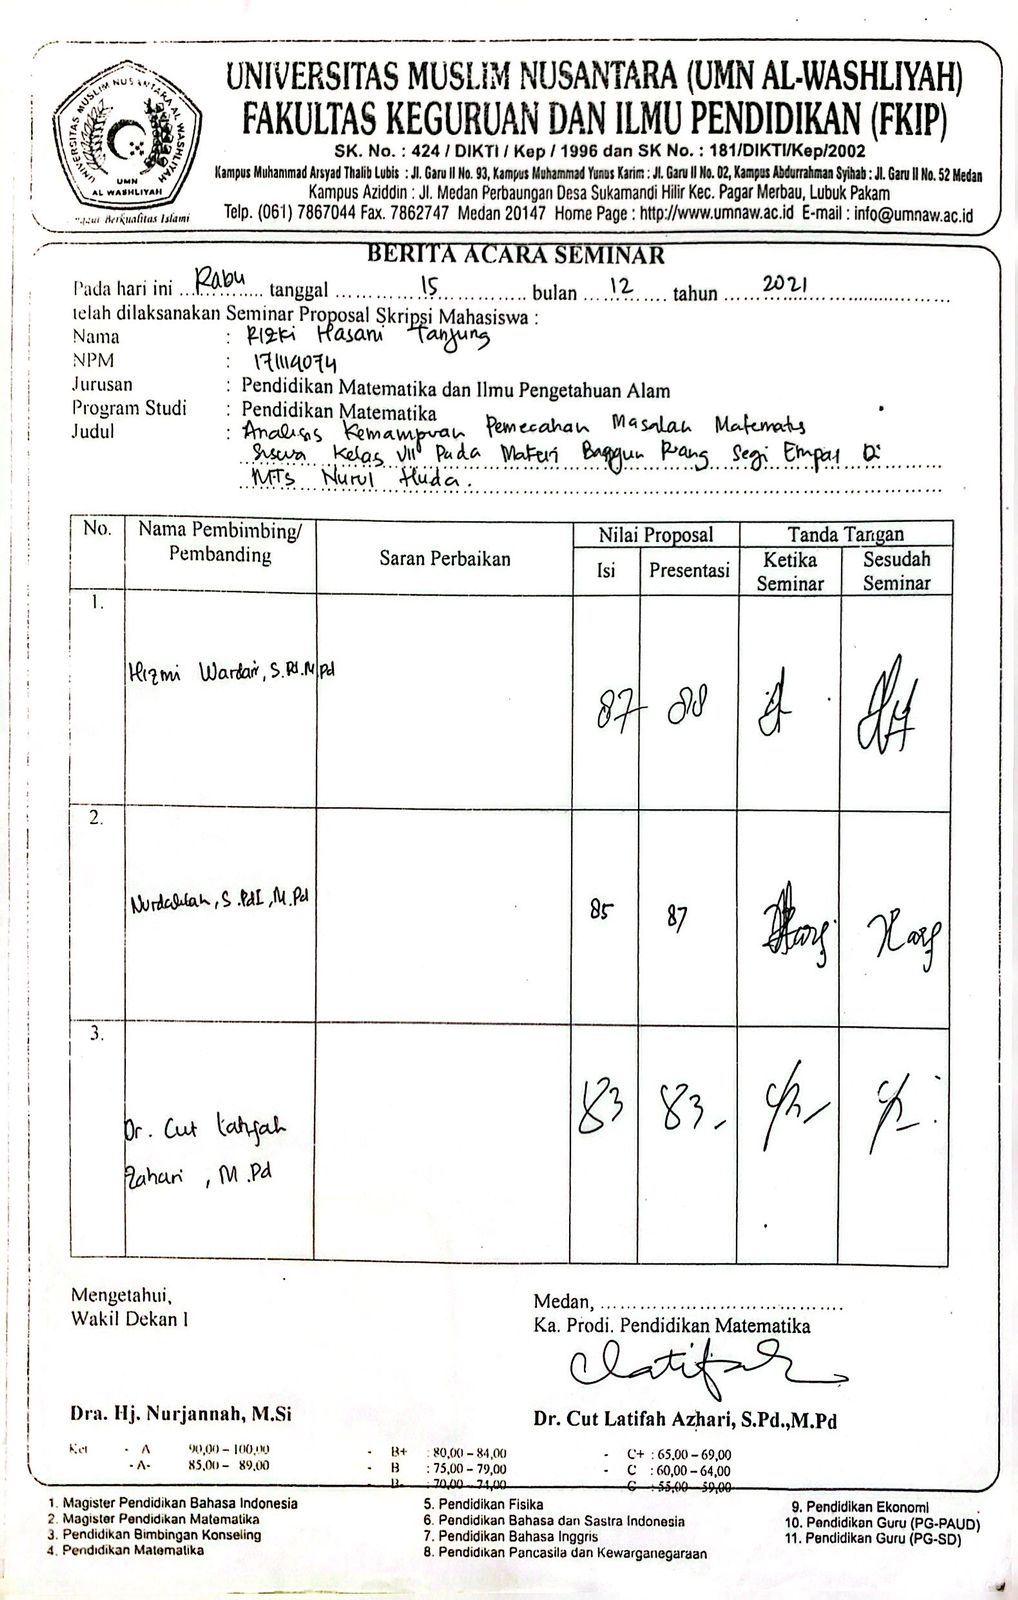 UNIVERSITAS MUSLIM NUSANTARA (UMN AL-WASHLIYAH)
FAKULTAS KEGURUAN DAN ILMU PENDIDIKAN (FKIP)
SK. No. : 424 / DIKTI / Kep / 1996 dan SK No. : 181/DIKTI/Kep/2002
Kampus Muhammad Arsyad Thalib Lubis : Jl. Garu II No. 93, Kampus Muhammad Yunus Karim : Jl. Garu II No. 02, Kampus Abdurrahman Syihab : Jl. Garu II No. 52 Medan
Kampus Aziddin : Jl. Medan Perbaungan Desa Sukamandi Hilir Kec. Pagar Merbau, Lubuk Pakam
Telp. (061) 7867044 Fax. 7862747 Medan 20147 Home Page : http://www.umnaw.ac.id E-mail : info@umnaw.ac.id
UNIVERSITAS MUSLIM NUSANTARA AL WASHLIYAH
UMN
AL WASHLIYAH
Berkualitas Islami
BERITA ACARA SEMINAR
Pada hari ini Rabu tanggal 15 bulan 12 tahun 2021
telah dilaksanakan Seminar Proposal Skripsi Mahasiswa :
Nama : Rizki Hasani Tanjung
NPM : 171114074
Jurusan : Pendidikan Matematika dan Ilmu Pengetahuan Alam
Program Studi : Pendidikan Matematika
Judul : Analisis Kemampuan Pemecahan Masalah Matematis
Siswa Kelas VII Pada Materi Bangun Ruang Segi Empat Di
MTs Nurul Huda.
No. Nama Pembimbing/ Pembanding Saran Perbaikan Nilai Proposal Tanda Tangan
Isi Presentasi Ketika Seminar Sesudah Seminar
1. Hizmi Wardani, S.Pd.M.Pd 87 88
2. Nurdalilah, S.PdI, M.Pd 85 87
3. Dr. Cut Latifah 83 83
Zahari, M.Pd
Mengetahui,
Wakil Dekan I
Medan, ..................................
Ka. Prodi. Pendidikan Matematika
Latifah
Dra. Hj. Nurjannah, M.Si
Dr. Cut Latifah Azhari, S.Pd.,M.Pd
Ket - A 90,00 – 100,00 - B+ : 80,00 – 84,00 - C+ : 65,00 – 69,00
- A- 85,00 – 89,00 - B : 75,00 – 79,00 - C : 60,00 – 64,00
B- : 70,00 – 74,00 C : 55,00 – 59,00
1. Magister Pendidikan Bahasa Indonesia
2. Magister Pendidikan Matematika
3. Pendidikan Bimbingan Konseling
4. Pendidikan Matematika
5. Pendidikan Fisika
6. Pendidikan Bahasa dan Sastra Indonesia
7. Pendidikan Bahasa Inggris
8. Pendidikan Pancasila dan Kewarganegaraan
9. Pendidikan Ekonomi
10. Pendidikan Guru (PG-PAUD)
11. Pendidikan Guru (PG-SD)